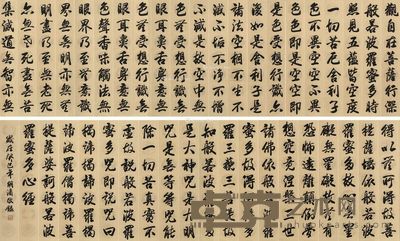 觀自在菩薩行深
般若波羅蜜多時
照見五蘊皆空度
一切苦厄舍利子
色不異空空不異
色色即是空空即
是色受想行識亦
復如是舍利子是
諸法空相不生不
滅不垢不淨不增
不減是故空中無
色無受想行識無
眼耳鼻舌身意無
色聲香味觸法無
眼界乃至無意識
界無無明亦無無
明盡乃至無老死
亦無老死盡無苦
集滅道無智亦無
得以無所得故菩
提薩埵依般若波
羅蜜多故心無罣
礙無罣礙故無有
恐怖遠離顛倒夢
想究竟涅槃三世
諸佛依般若波羅
蜜多故得阿耨多
羅三藐三菩提故
知般若波羅蜜多
是大神咒是大明
咒是無上咒是無
等等咒能
除一切苦真實不
虛故說般若波羅
蜜多咒即說咒曰
揭諦揭諦波羅揭
諦波羅僧揭諦菩
提薩婆訶般若波
羅蜜多心經
歲在癸巳年 敬錄